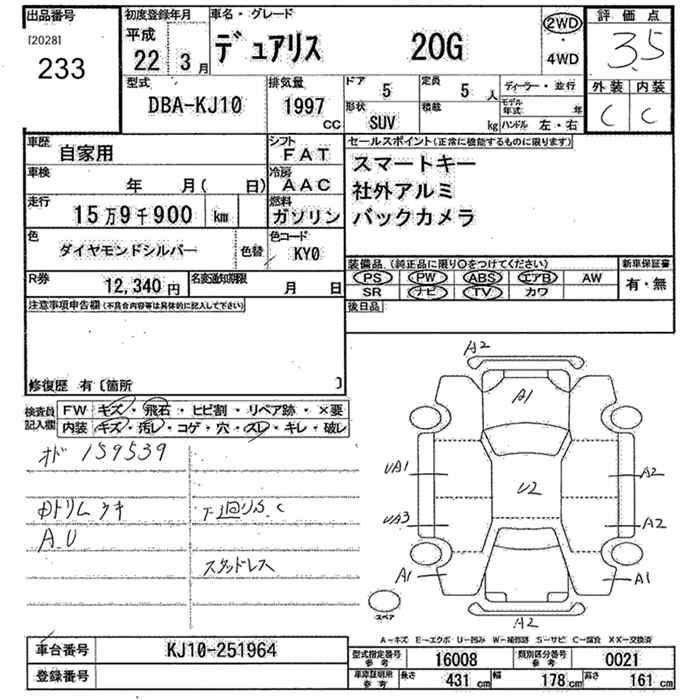 出品番号 初度登録年月 車名・グレード 評価点
[2028] 平成 2WD
233 22 3月 デュアリス 20G ・ 3.5
4WD
型式 排気量 ドア 5 定員 5人 ディーラー・並行 外装 内装
DBA-KJ10 1997cc 形状 SUV 積載 kg モデル年式 年 C C
ハンドル 左・右
車歴 自家用 シフト FAT セールスポイント(正常に機能するものに限ります)
車検 年 月( 日) 冷房 AAC スマートキー
走行 15万9千900 km 燃料 ガソリン 社外アルミ
色 ダイヤモンドシルバー 色替 色コード KY0 バックカメラ
R券 12,340円 名変通知期限 月 日
装備品 (純正品に限り○をつけてください) 新車保証書
PS PW ABS エアB AW 有・無
SR ナビ TV カワ
注意事項申告欄(不具合内容等は具体的に記入して下さい) 後日品
修復歴 有〔箇所 〕
検査員記入欄 FW キズ・飛石・ヒビ割・リペア跡・×要
内装 キズ・汚レ・コゲ・穴・スレ・キレ・破レ
オド 159539
内トリム ウキ 下回りS.C
A.U
スタッドレス
A2
A1
UA1 A2
U2
UA3 A2
A1 A1
スペア A2
A-キズ E-エクボ U-凹み W-補修跡 S-サビ C-腐食 XX-交換済
車台番号 KJ10-251964 型式指定番号 参考 16008 類別区分番号 参考 0021
登録番号 車庫証明用 参考 長さ 431cm 幅 178cm 高さ 161cm